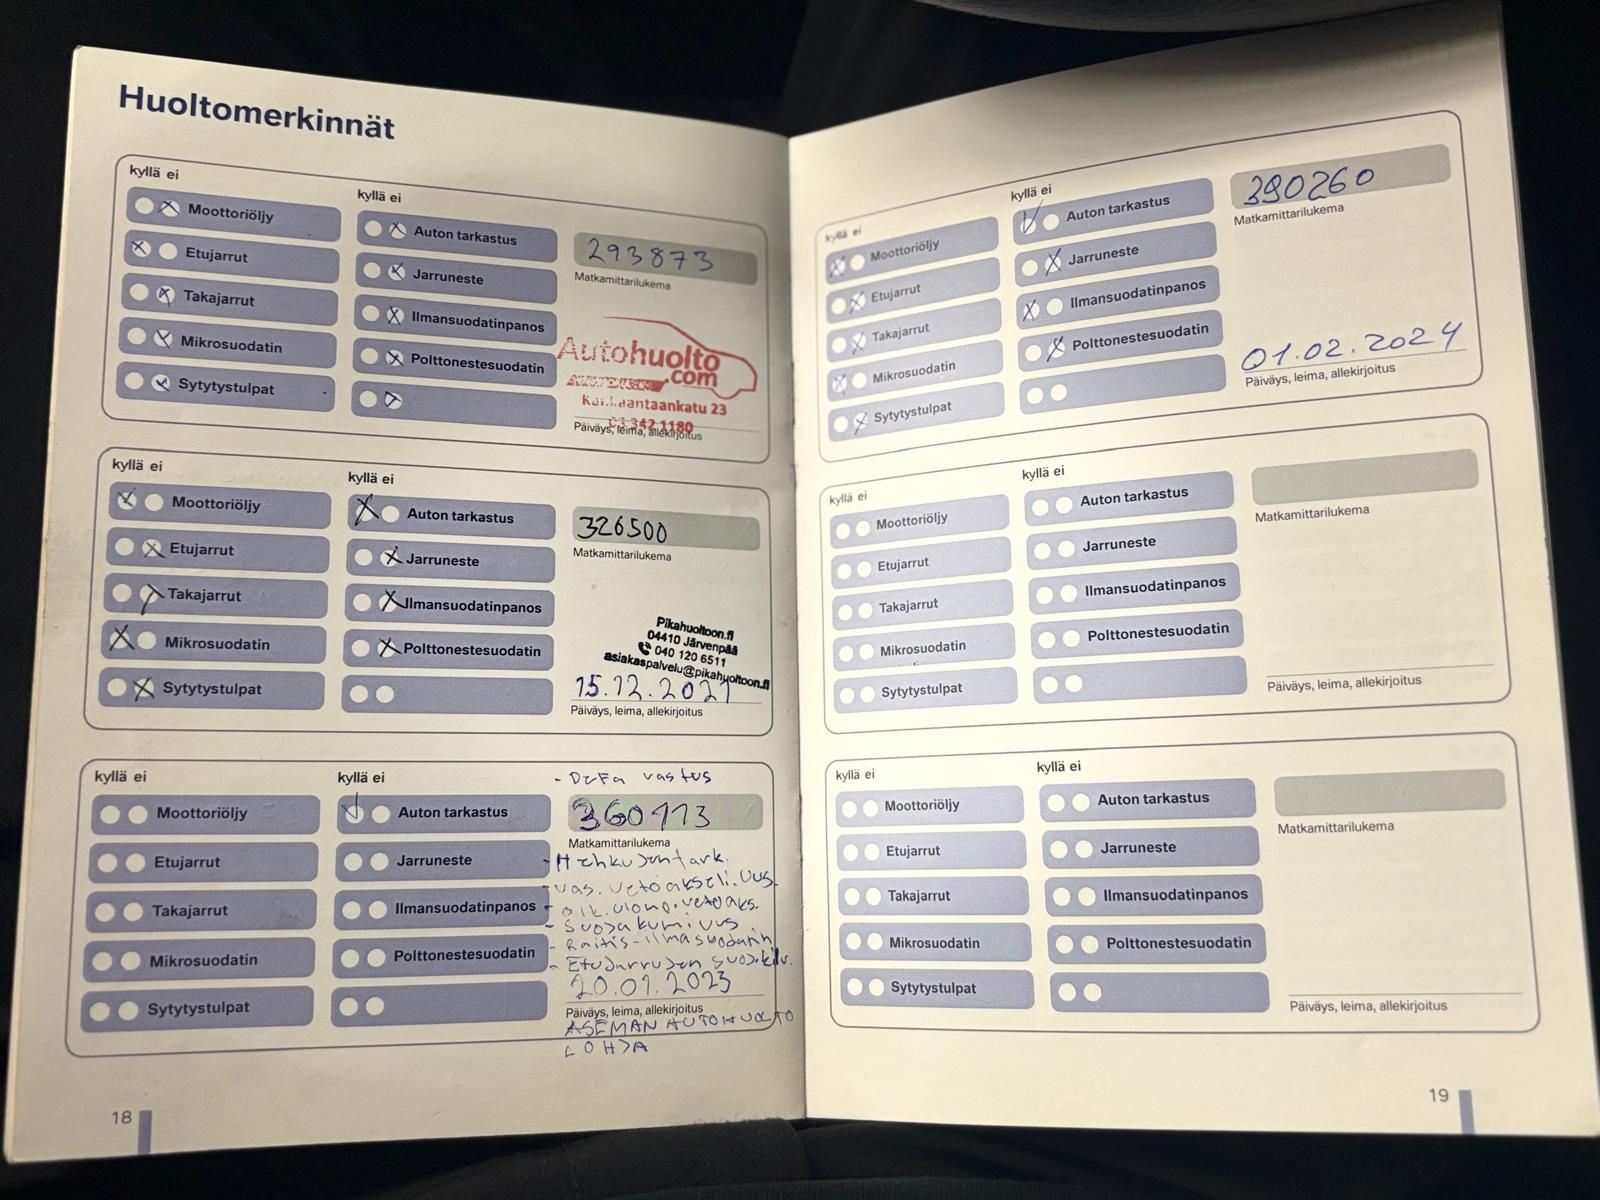 Huoltomerkinnät
kyllä ei
kyllä ei
Moottoriöljy
Etujarrut
Takajarrut
Mikrosuodatin
Sytytystulpat
Auton tarkastus
Jarruneste
Ilmansuodatinpanos
Polttonestesuodatin
293873
Matkamittarilukema
Autohuolto
.com
Kankaantaankatu 23
03 342 1180
Päiväys, leima, allekirjoitus
kyllä ei
kyllä ei
Moottoriöljy
Etujarrut
Takajarrut
Mikrosuodatin
Sytytystulpat
Auton tarkastus
Jarruneste
Ilmansuodatinpanos
Polttonestesuodatin
326500
Matkamittarilukema
Pikahuoltoon.fi
04410 Järvenpää
040 120 6511
asiakaspalvelu@pikahuoltoon.fi
15.12.2021
Päiväys, leima, allekirjoitus
kyllä ei
kyllä ei
Moottoriöljy
Etujarrut
Takajarrut
Mikrosuodatin
Sytytystulpat
Auton tarkastus
Jarruneste
Ilmansuodatinpanos
Polttonestesuodatin
- DEFA vastus
360113
Matkamittarilukema
- Hehkujen tark.
- vas. vetoakseli. uus.
- oik. ulomp. vetoaks.
- suojakumi uus
- Raitis-ilmasuodatin
- Etujarrujen suojakilv.
20.01.2023
Päiväys, leima, allekirjoitus
ASEMAN AUTOHUOLTO
LOHJA
18
kyllä ei
kyllä ei
Moottoriöljy
Etujarrut
Takajarrut
Mikrosuodatin
Sytytystulpat
Auton tarkastus
Jarruneste
Ilmansuodatinpanos
Polttonestesuodatin
390260
Matkamittarilukema
01.02.2024
Päiväys, leima, allekirjoitus
kyllä ei
kyllä ei
Moottoriöljy
Etujarrut
Takajarrut
Mikrosuodatin
Sytytystulpat
Auton tarkastus
Jarruneste
Ilmansuodatinpanos
Polttonestesuodatin
Matkamittarilukema
Päiväys, leima, allekirjoitus
kyllä ei
kyllä ei
Moottoriöljy
Etujarrut
Takajarrut
Mikrosuodatin
Sytytystulpat
Auton tarkastus
Jarruneste
Ilmansuodatinpanos
Polttonestesuodatin
Matkamittarilukema
Päiväys, leima, allekirjoitus
19